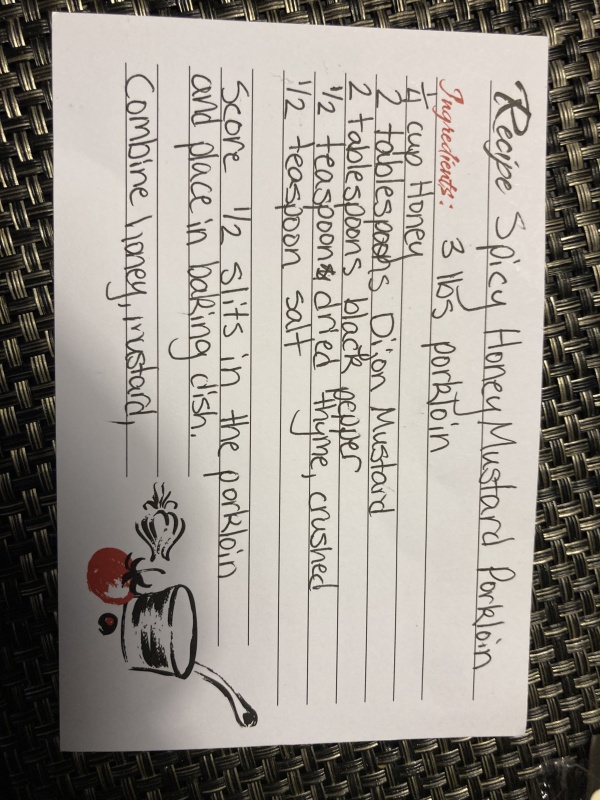 Recipe Spicy Honey Mustard Porkloin
Ingredients: 3 lbs porkloin
1/4 cup Honey
2 tablespoons Dijon Mustard
2 tablespoons black pepper
1/2 teaspoon dried thyme, crushed
1/2 teaspoon salt
Score 1/2 slits in the porkloin
and place in baking dish.
Combine honey, mustard,